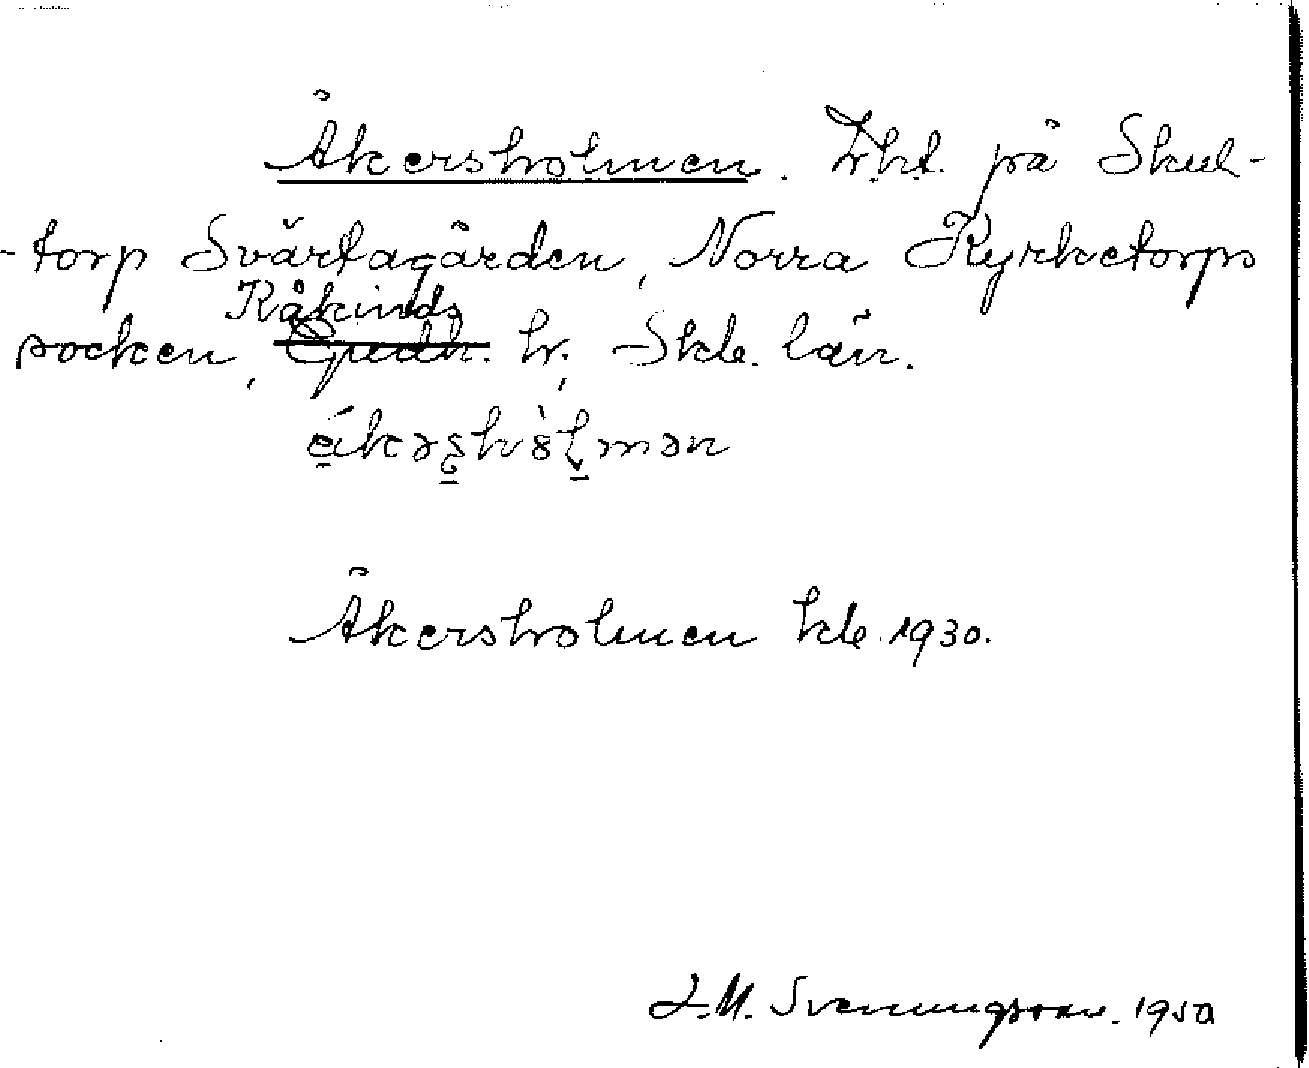 Åkersholmen. Lht. på Skul-
-torp Svärtagården, Norra Kyrketorps
Kåkinds
socken, Gudh. hr, Skb. län.
åkərshòlmən
Åkersholmen hkb 1930.
J.M. Svenungsson. 1950